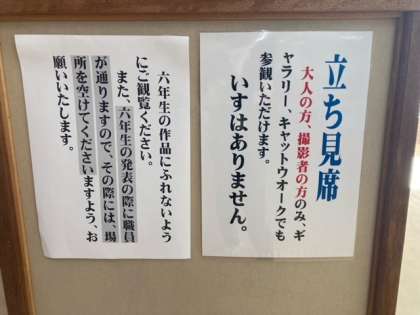 立ち見席
大人の方、撮影者の方のみ、ギ
ャラリー、キャットウオークでも
参観いただけます。
いすはありません。
六年生の作品にふれないよう
にご観覧ください。
また、六年生の発表の際に職員
が通りますので、その際には、場
所を空けてくださいますよう、お
願いいたします。